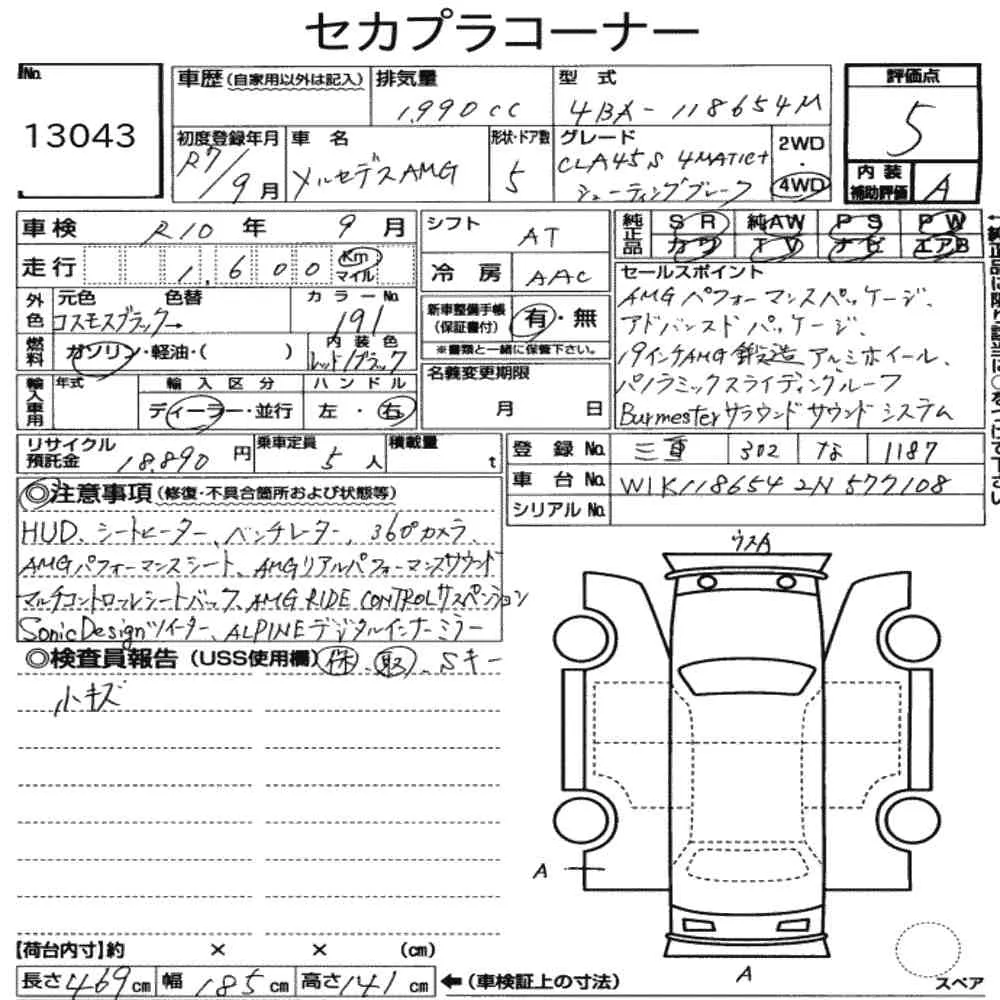 セカプラコーナー
No.
13043
車歴(自家用以外は記入)
排気量
1,990cc
型 式
4BA-118654M
評価点
5
初度登録年月
R7/9月
車 名
メルセデスAMG
形状・ドア数
5
グレード
CLA45S 4MATIC+
シューティングブレーク
2WD
・
4WD
内 装
補助評価
A
車検 R10 年 9 月
シフト AT
純正品
SR 純AW PS PW
カワ TV ナビ エアB
走行 1,600 Km マイル
冷 房 AAC
セールスポイント
AMGパフォーマンスパッケージ、
アドバンスドパッケージ、
19インチAMG鍛造アルミホイール、
パノラミックスライディングルーフ
Burmesterサラウンドサウンドシステム
外色
元色 色替
コスモスブラック→
カラーNo.
191
新車整備手帳
(保証書付)
有・無
※書類と一緒に保管下さい。
燃料
ガソリン・軽油・( )
内装色
レッド/ブラック
名義変更期限
月 日
輸入車用
年式
輸入区分
ディーラー・並行
ハンドル
左・右
リサイクル
預託金 18,890 円
乗車定員
5 人
積載量
t
登 録 No. 三重 302 な 1187
車 台 No. W1K1186542N577108
シリアルNo.
◎注意事項(修復・不具合箇所および状態等)
HUD、シートヒーター、ベンチレーター、360°カメラ、
AMGパフォーマンスシート、AMGリアルパフォーマンスサウンド
マルチコントロールシートバック、AMG RIDE CONTROLサスペンション
SonicDesignツイーター、ALPINEデジタルインナーミラー
◎検査員報告(USS使用欄) 保、取、Sキー
小キズ
ウスA
A
A
スペア
【荷台内寸】約 × × (cm)
長さ469cm 幅185cm 高さ141cm ←(車検証上の寸法)